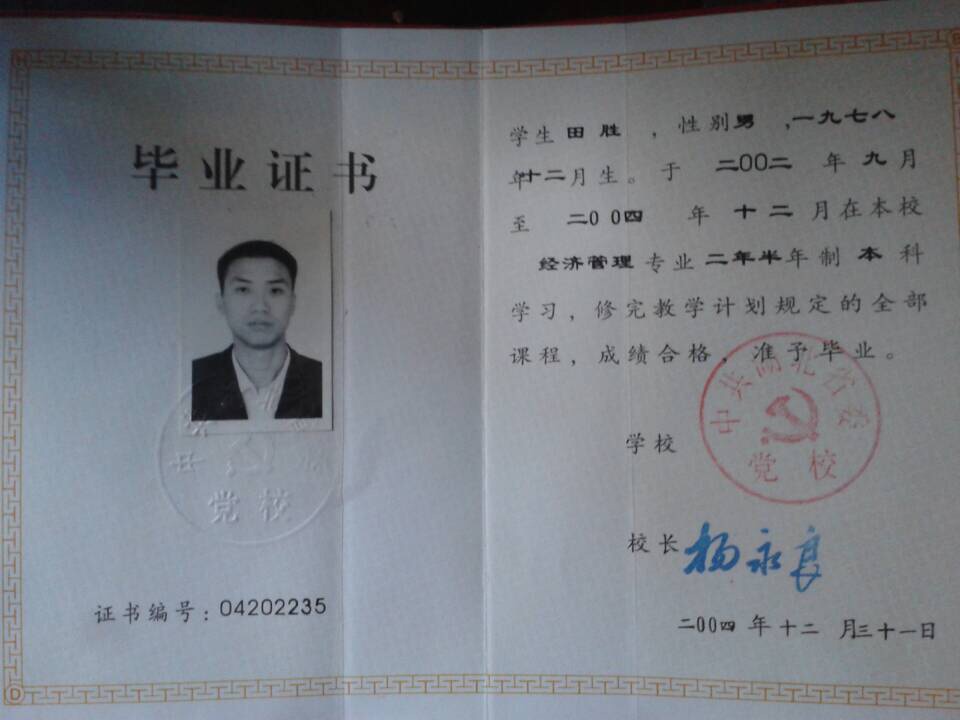 毕业证书
党校
证书编号:04202235
学生田胜,性别男,一九七八
年十二月生。于二00二年九月
至二00四年十二月在本校
经济管理专业二年半年制本科
学习,修完教学计划规定的全部
课程,成绩合格,准予毕业。
中共湖北省委
党校
学校
校长 杨永良
二00四年十二月三十一日